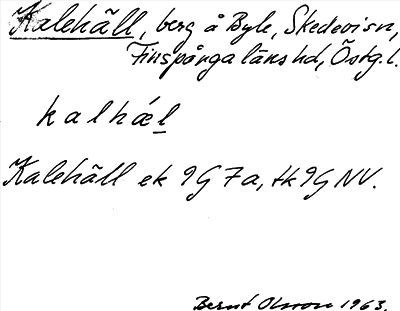 Kalehäll, berg å Byle, Skedevi sn,
Finspånga läns hd, Östg.l.
kalhæ̀l
Kalehäll ek 9G 7a, tk 9G NV.
Bernt Olsson 1963.